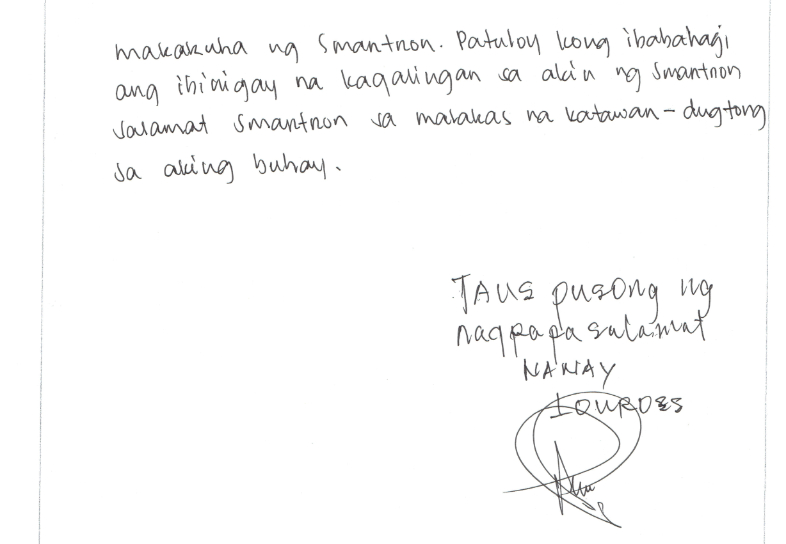 makakuha ng Smantron. Patuloy kong ibabahagi
ang ibinigay na kagalingan sa akin ng Smantron
salamat Smantron sa malakas na katawan - dugtong
sa aking buhay.
TAUS pusong ng
nagpapasalamat
NANAY
LOURDES